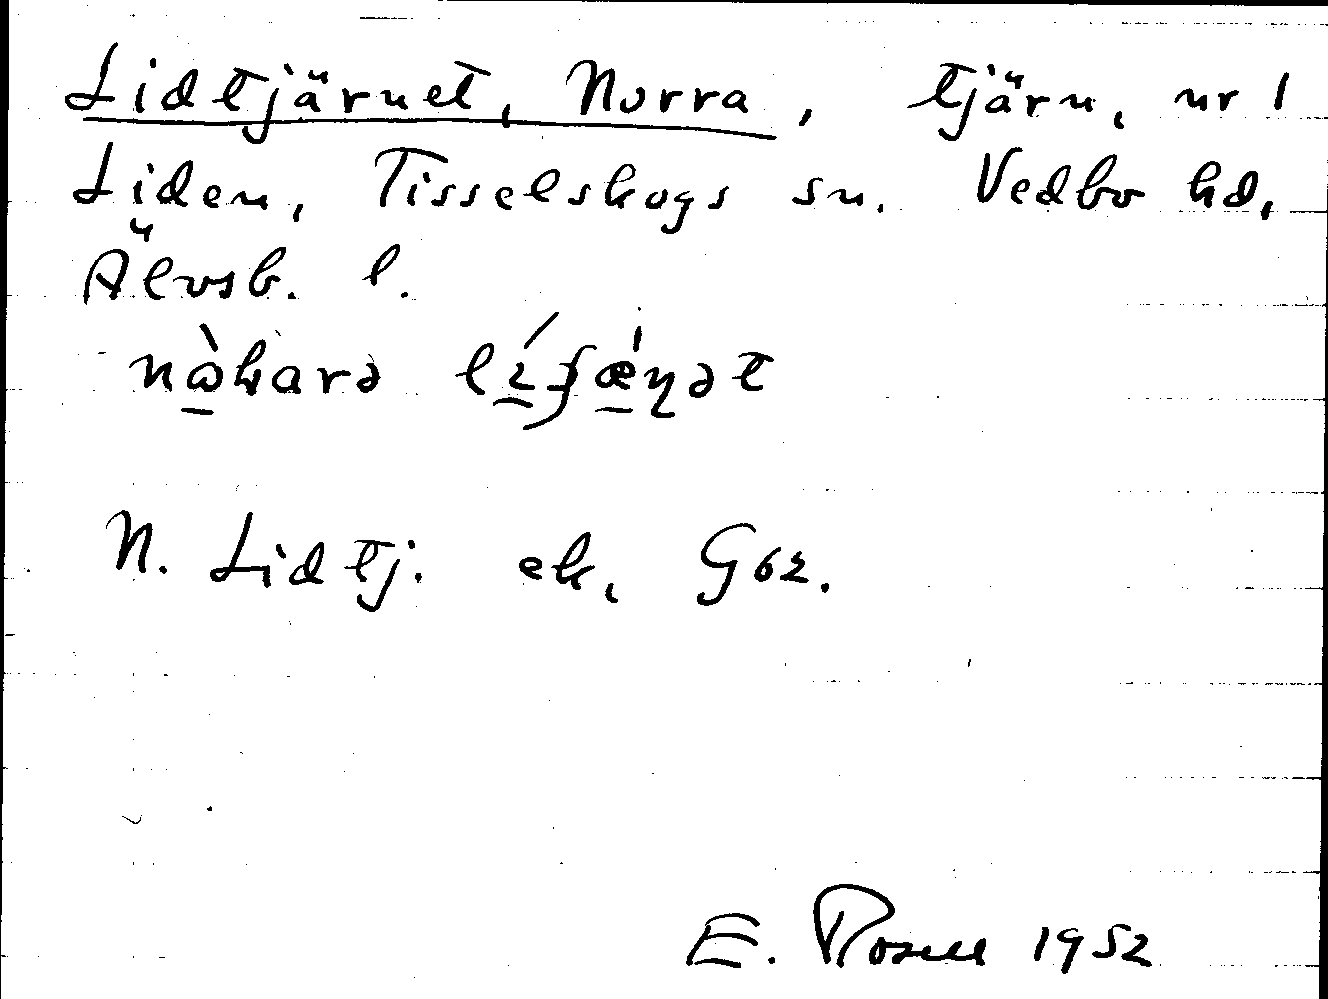 Lidtjärnet, Norra, tjärn, nr 1
Liden, Tisselskogs sn. Vedbo hd,
Älvsb. l.
N. Lidtj. ek. G62.
E. Rosell 1952